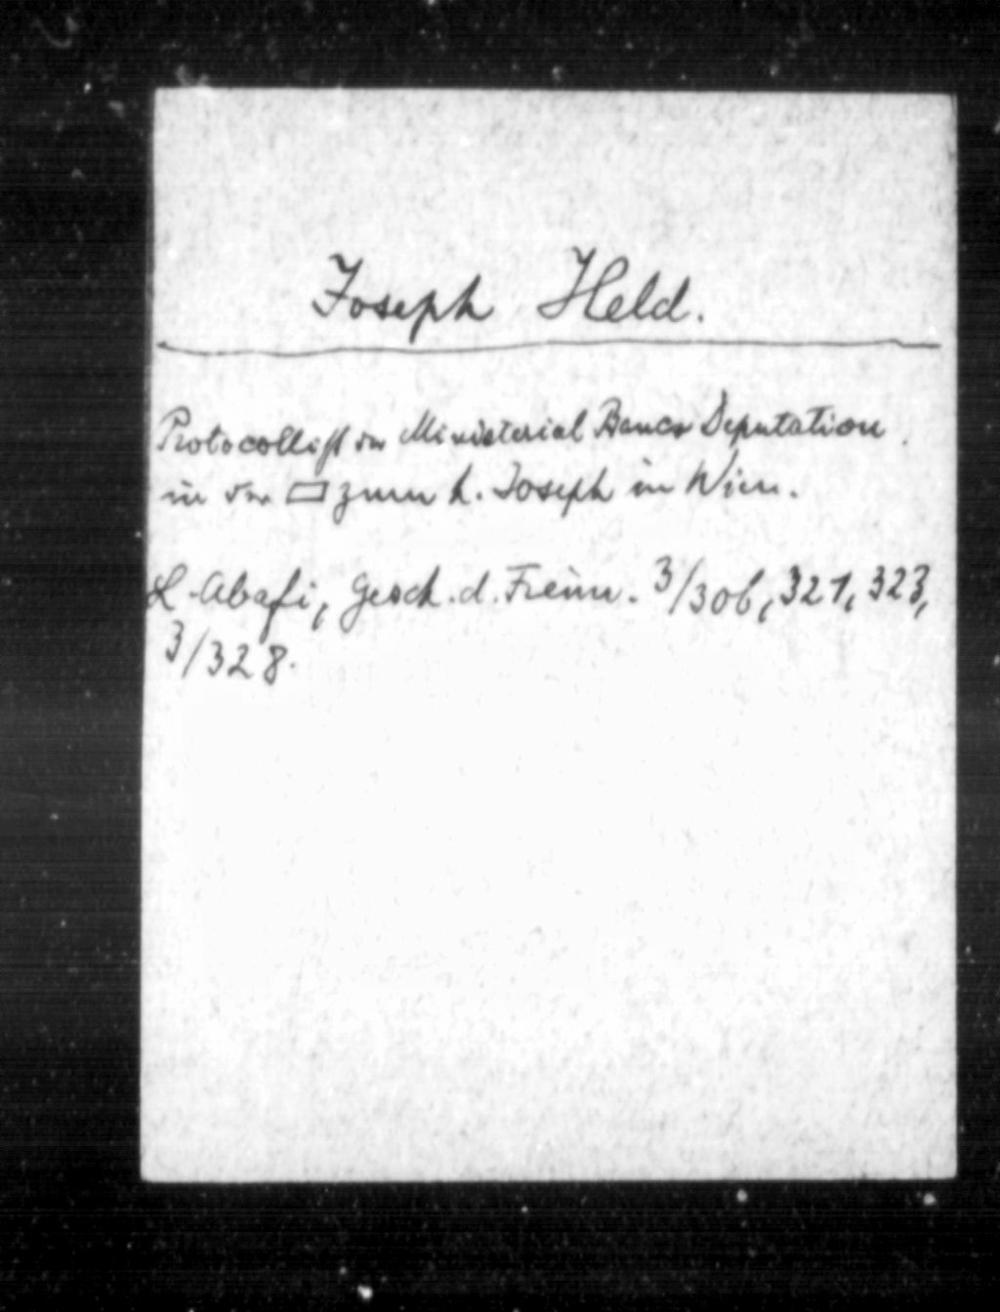 Joseph Held.
Protocollist der Ministerial Banco Deputation.
in der ▭ zum h. Joseph in Wien.
L. Abafi, Gesch. d. Freim. 3/306, 321, 323,
3/328.